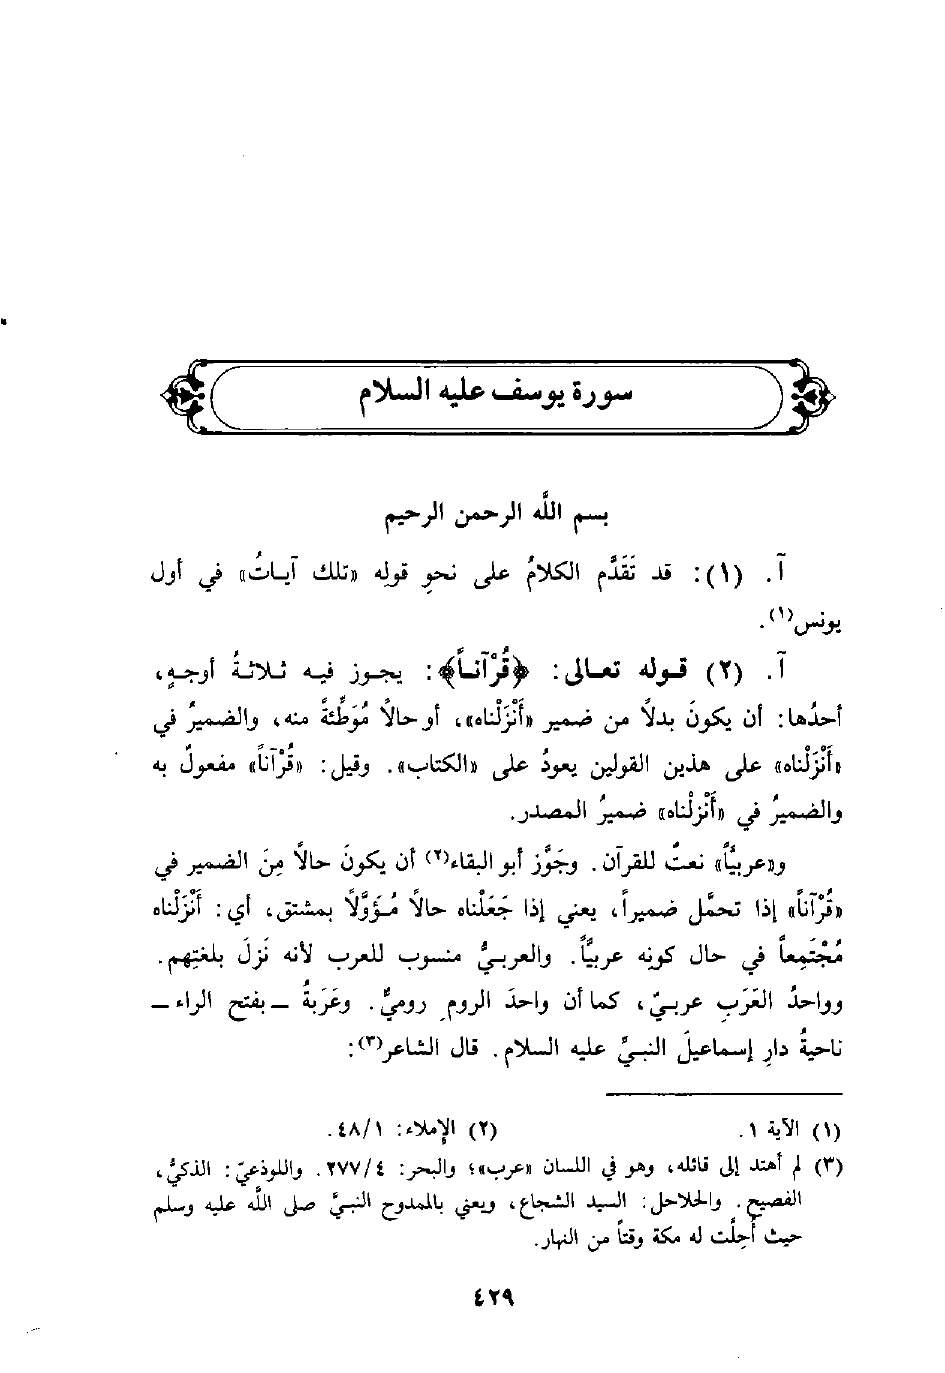 سورة يوسف عليه السلام
بسم اللَّه الرحمن الرحيم
آ. (١): قد تَقَدَّم الكلامُ على نحوِ قوله «تلك آيـاتُ» في أول
يونس(١).
آ. (٢) قـولـه تعـالى: ﴿قُرْآنـاً﴾: يجـوز فيـه ثـلاثـةُ أوجـهٍ،
أحدُها: أن يكونَ بدلاً من ضمير «أَنْزَلْناه»، أو حالاً مُوَطِّئةً منه، والضميرُ في
«أَنْزَلْناه» على هذين القولين يعودُ على «الكتاب». وقيل: «قُرْآناً» مفعولٌ به
والضميرُ في «أَنْزلْناه» ضميرُ المصدر.
و«عربيَّاً» نعتٌ للقرآن. وجَوَّز أبو البقاء(٢) أن يكونَ حالاً مِنَ الضمير في
«قُرْآناً» إذا تحمَّل ضميراً، يعني إذا جَعَلْناه حالاً مُـؤَوَّلاً بمشتق، أي: أَنْزَلْناه
مُجْتَمِعاً في حال كونِه عربيَّاً. والعربـيُّ منسوب للعرب لأنه نَزَلَ بلغتِهم.
وواحدُ العَرَبِ عربـيّ، كما أن واحدَ الروم روميٌّ. وعَرَبَةُ ــ بفتح الراء ــ
ناحيةُ دارِ إسماعيلَ النبـيِّ عليه السلام. قال الشاعر(٣):
(١) الآية ١.
(٢) الإملاء: ٤٨/١.
(٣) لم أهتد إلى قائله، وهو في اللسان «عرب»؛ والبحر: ٢٧٧/٤. واللوذعيّ: الذكيُّ،
الفصيح. والحلاحل: السيد الشجاع، ويعني بالممدوح النبيَّ صلى اللَّه عليه وسلم
حيث أُحِلَّت له مكة وقتاً من النهار.
٤٢٩